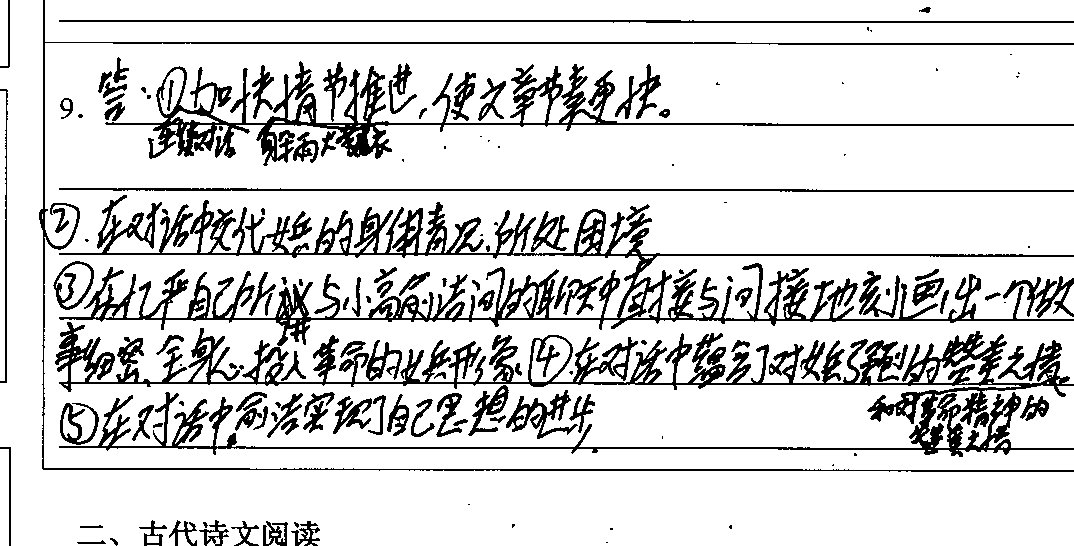 9. 答:①加快情节推进,使文章节奏更快。
连续对话
②.在对话中交代女兵的身体情况、所处困境
③在忆严自己所讲与小高、俞洁间的聊天中直接与间接地刻画出一个做
事细密、全身心投入革命的女兵形象④.在对话中蕴含了对女兵强烈的赞美之情
和对革命精神的
赞美之情
⑤在对话中俞洁实现了自己思想的进步.
二、古代诗文阅读